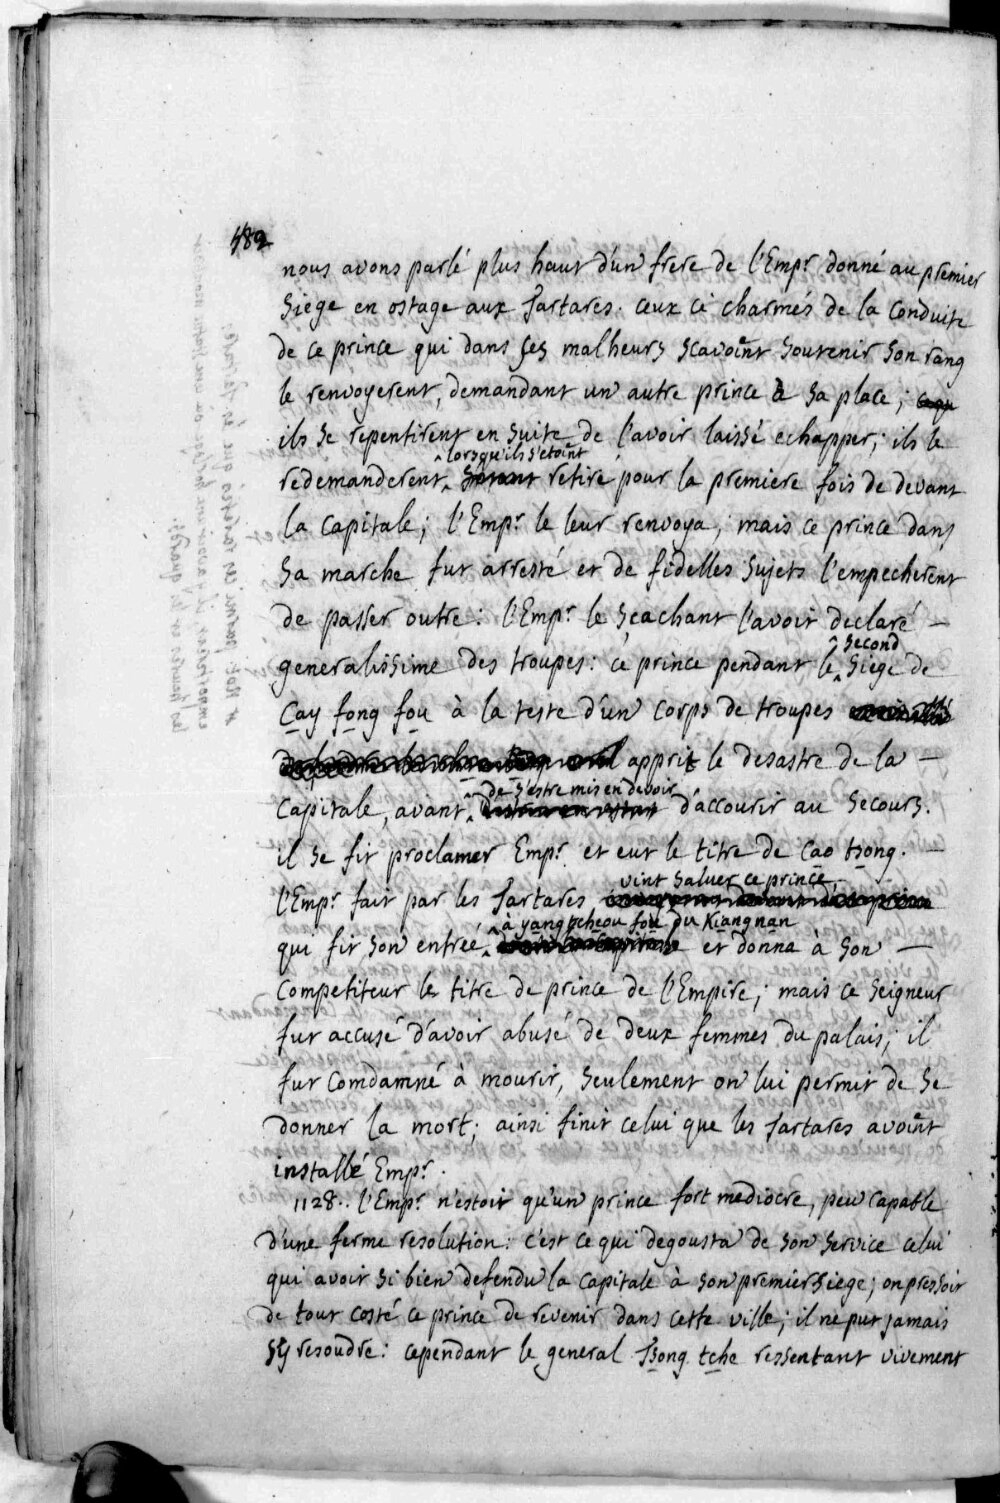 482
nous avons parlé plus haut d'un frere de l'Empr donné au premier
siege en ostage aux Tartares. ceux ci charmés de la conduite
de ce prince qui dans ses malheurs scavoint soutenir son rang
le renvoyerent, demandant un autre prince à sa place;
ils se repentirent en suite de l'avoir laissé echapper; ils le
lorsqu'ils s'etoint
redemanderent retiré pour la premiere fois de devant
la capitale; l'Empr le leur renvoya; mais ce prince dans
sa marche fut arresté et de fidelles sujets l'empecherent
de passer outre: l'Empr le sçachant l'avoit declaré —
second
generalissime des troupes: ce prince pendant le siege de
Cay fong fou à la teste d'un corps de troupes
apprit le desastre de la —
de s'estre mis en devoir
capitale, avant d'accourir au secours.
il se fit proclamer Empr et eut le titre de Cao tsong. —
vint saluer ce prince
l'Empr fait par les Tartares
à yang tcheou fou du Kiangnan
qui fit son entreé et donna à son —
competiteur le titre de prince de l'Empire; mais ce seigneur
fut accusé d'avoir abusé de deux femmes du palais; il
fut comdamné à mourir, seulement on lui permit de se
donner la mort; ainsi finit celui que les Tartares avoint
installé Empr.
1128.. l'Empr n'estoit qu'un prince fort mediocre, peu capable
d'une ferme resolution: c'est ce qui degousta de son service celui
qui avoit si bien defendu la capitale à son premier siege; on pressoit
de tout costé ce prince de revenir dans cette ville; il ne put jamais
s'y resoudre: cependant le general Tsong tche ressentant vivement